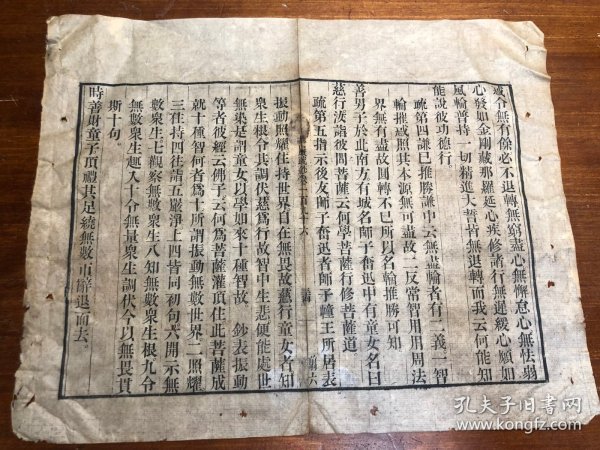 惑令無有餘必不退轉無窮盡心無懈怠心無怯弱
心發如金剛藏那羅延心疾修諸行無遲緩心願如
風輪普持一切精進大誓皆無退轉而我云何能知
能說彼功德行
疏第四謙已推勝謙中云無盡輪者有二義一智
輪摧惑照其本源無可盡故二反常智用用周法
界無有盡故圓轉不已所以名輪推勝可知
善男子於此南方有城名師子奮迅中有童女名曰
慈行汝詣彼問菩薩云何學菩薩行修菩薩道
疏第五指示後友師子奮迅者師子幢王所居表
振動照耀住持世界自在無畏故慈行童女者知
衆生根令其調伏慈為行故智中生悲便能處世
無染是謂童女以學如來十種智故 鈔表振動
等者彼經云佛子云何為菩薩灌頂住此菩薩成
就十種智何者為十所謂振動無數世界二照耀
三住持四往詣五嚴淨上四皆同初句六開示無
數衆生七觀察無數衆生八知無數衆生根九令
無數衆生趣入十令無量衆生調伏今以無畏貫
斯十句
時善財童子頂禮其足繞無數帀辭退而去
孔夫子旧书网
www.kongfz.com